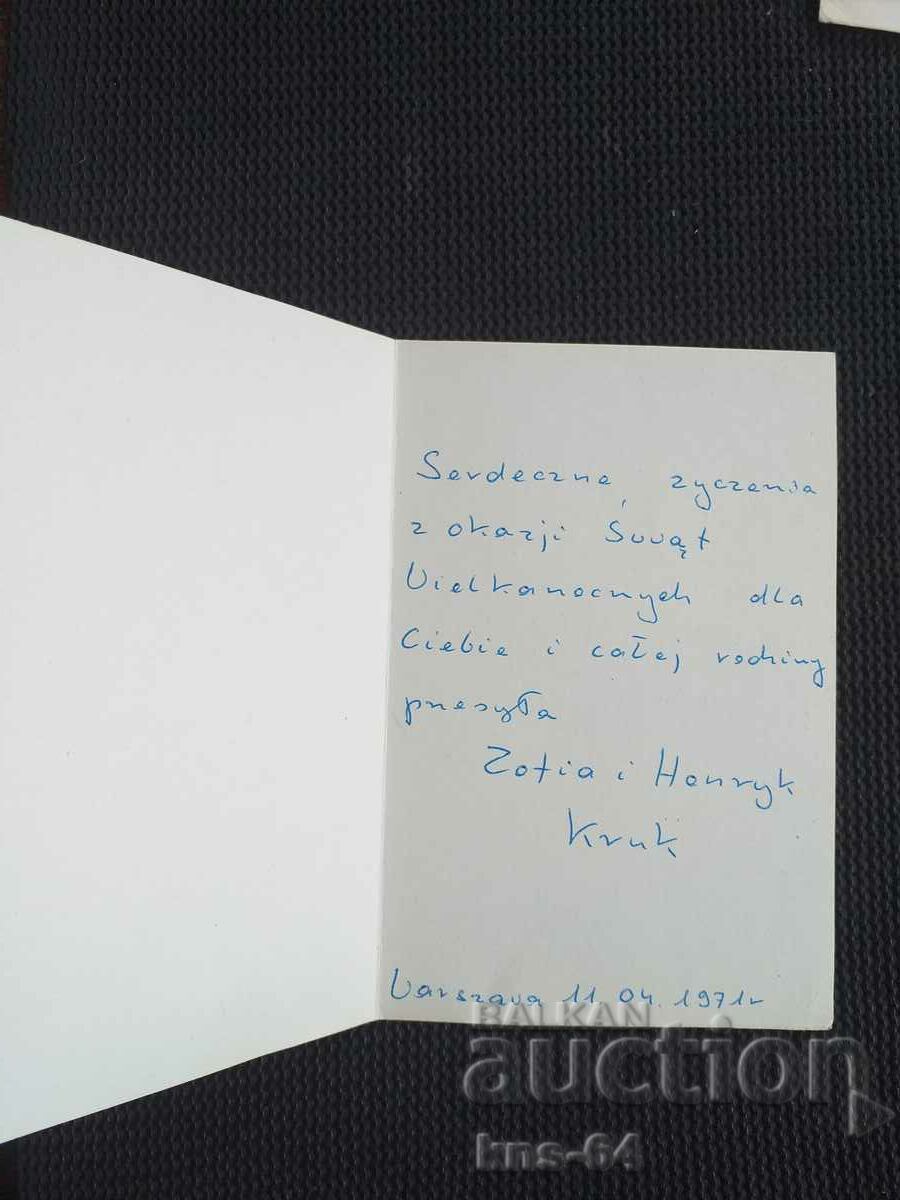 Serdeczne życzenia
z okazji Świąt
Wielkanocnych dla
Ciebie i całej rodziny
przesyła
Zofia i Henryk
Kruk
Warszawa 11.04.1971r
BALKAN
auction
kns-64